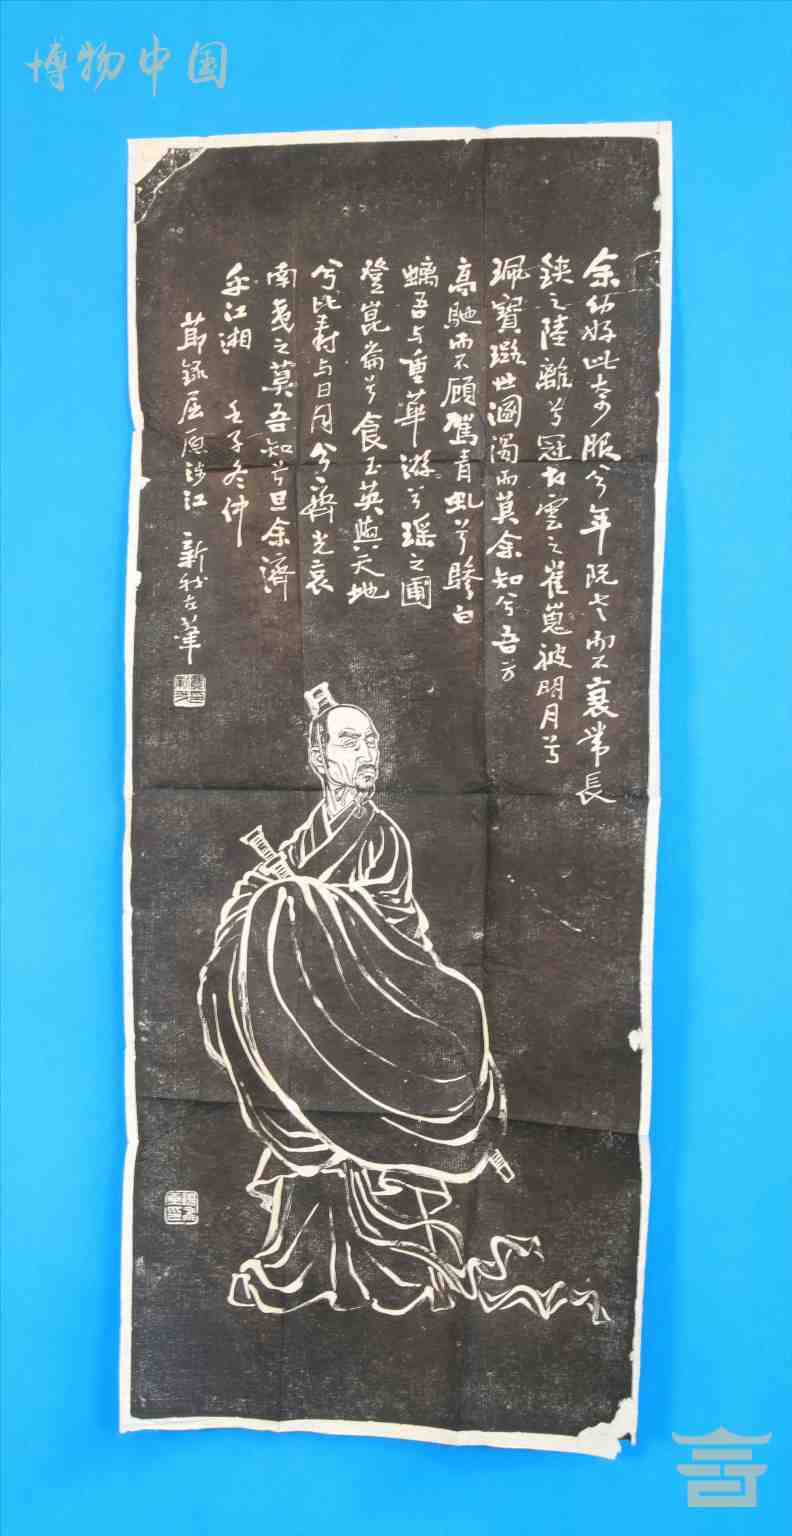 博物中国
余幼好此奇服兮年既老而不衰带長
鋏之陸離兮冠切雲之崔嵬被明月兮
珮寶璐世溷濁而莫余知兮吾方
高馳而不顧駕青虬兮驂白
螭吾与重華游兮瑶之圃
登崑崙兮食玉英與天地
兮比寿与日月兮齊光哀
南夷之莫吾知兮旦余濟
乎江湘 壬子冬仲
節錄屈原涉江 新秋左筆